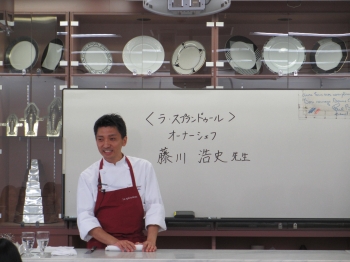 <ラ・スプランドゥール>
オーナーシェフ
藤川 浩史 先生